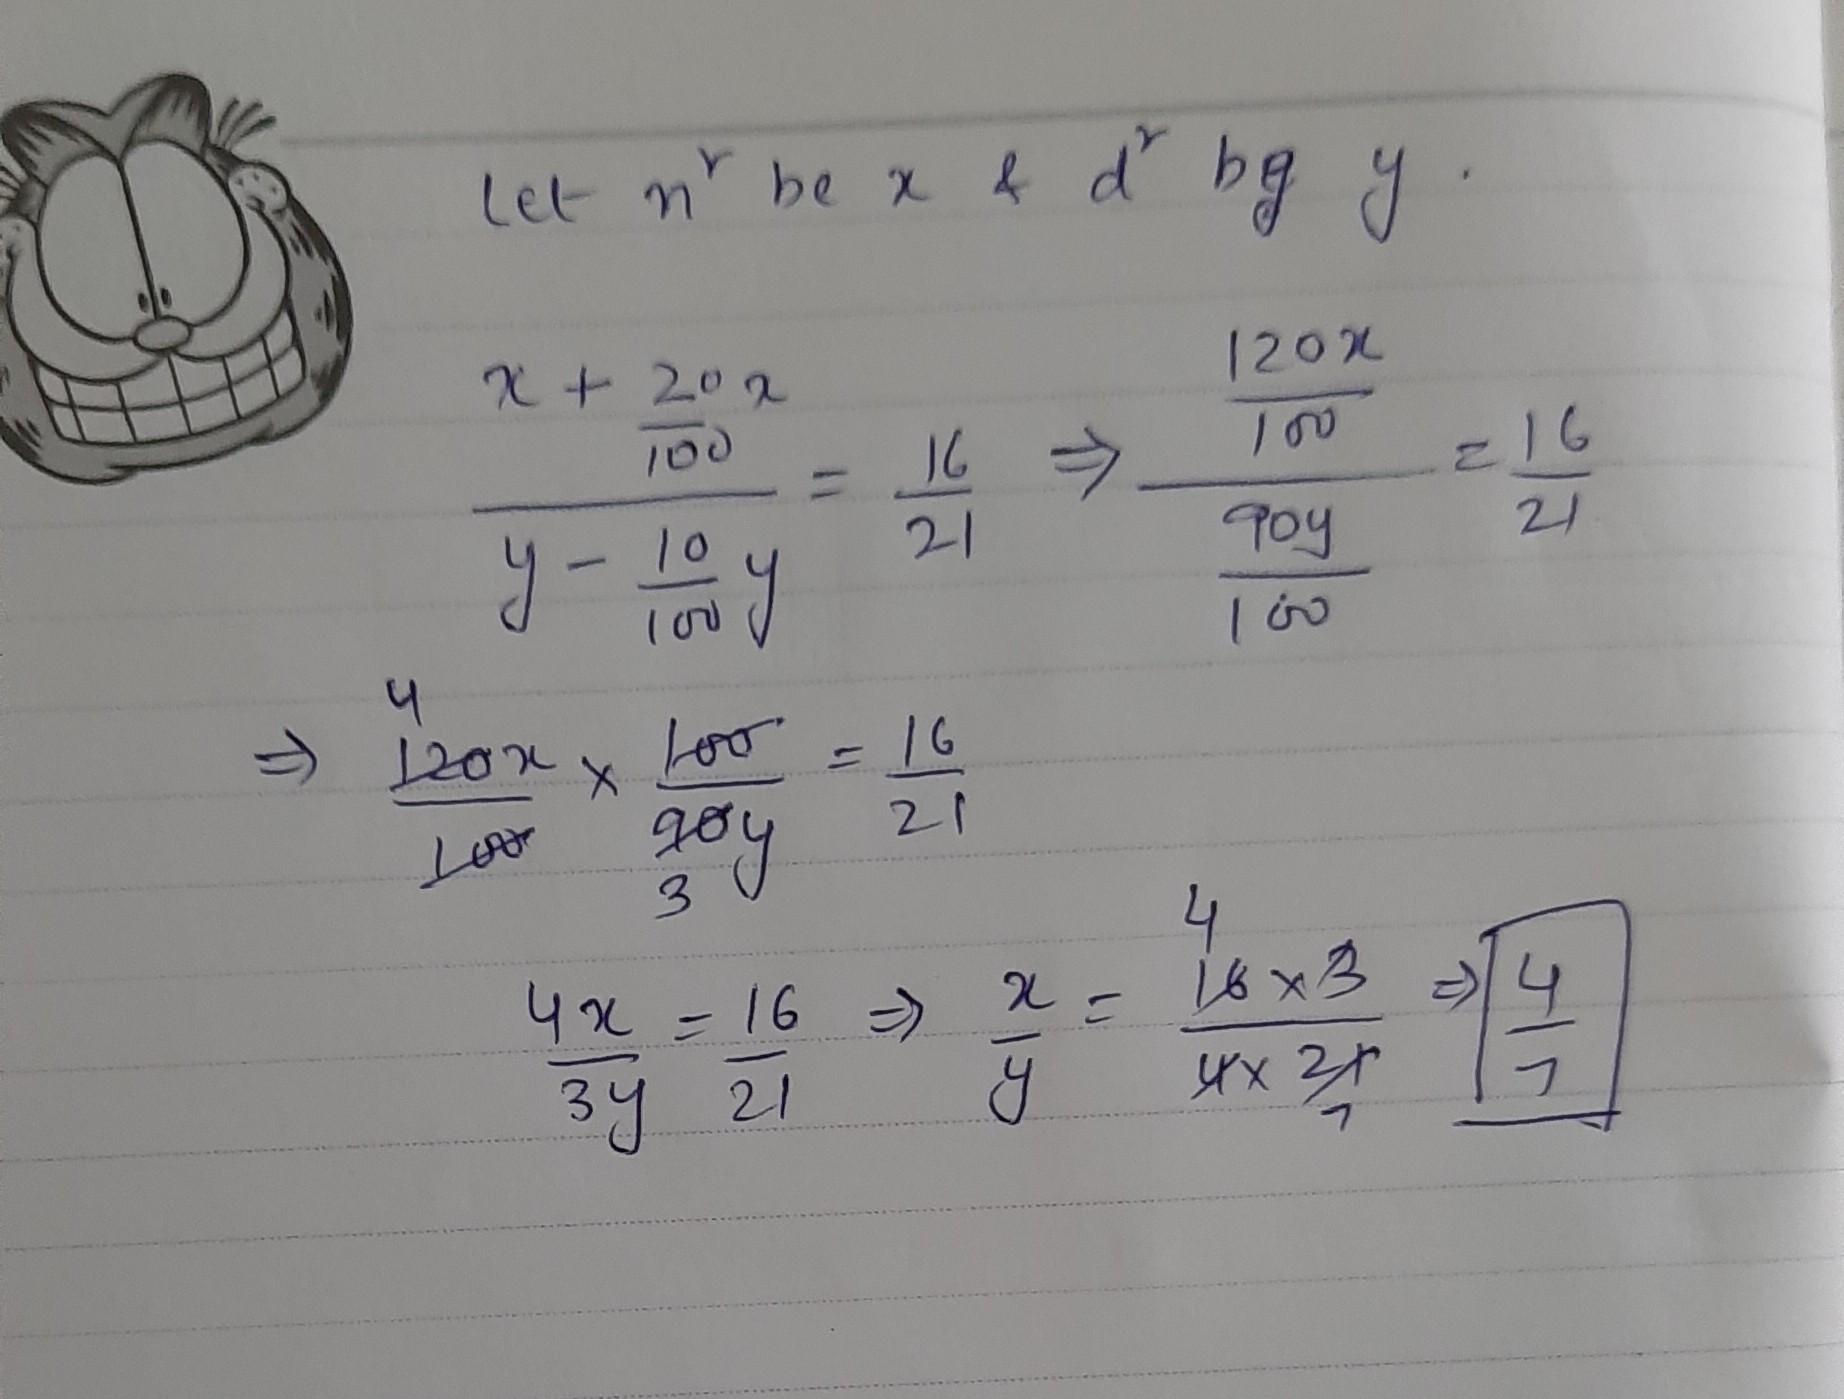 Let nʳ be x & dʳ be y.
(x + 20/100 x)/(y - 10/100 y) = 16/21 ⇒ (120x/100)/(90y/100) = 16/21
⇒ 120x/100 × 100/90y = 16/21 4 3
4x/3y = 16/21 ⇒ x/y = 16×3/4×21 ⇒ 4/7 4 7